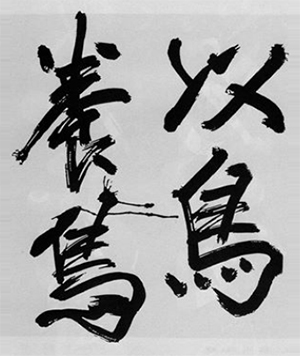 以鳥
養鳥